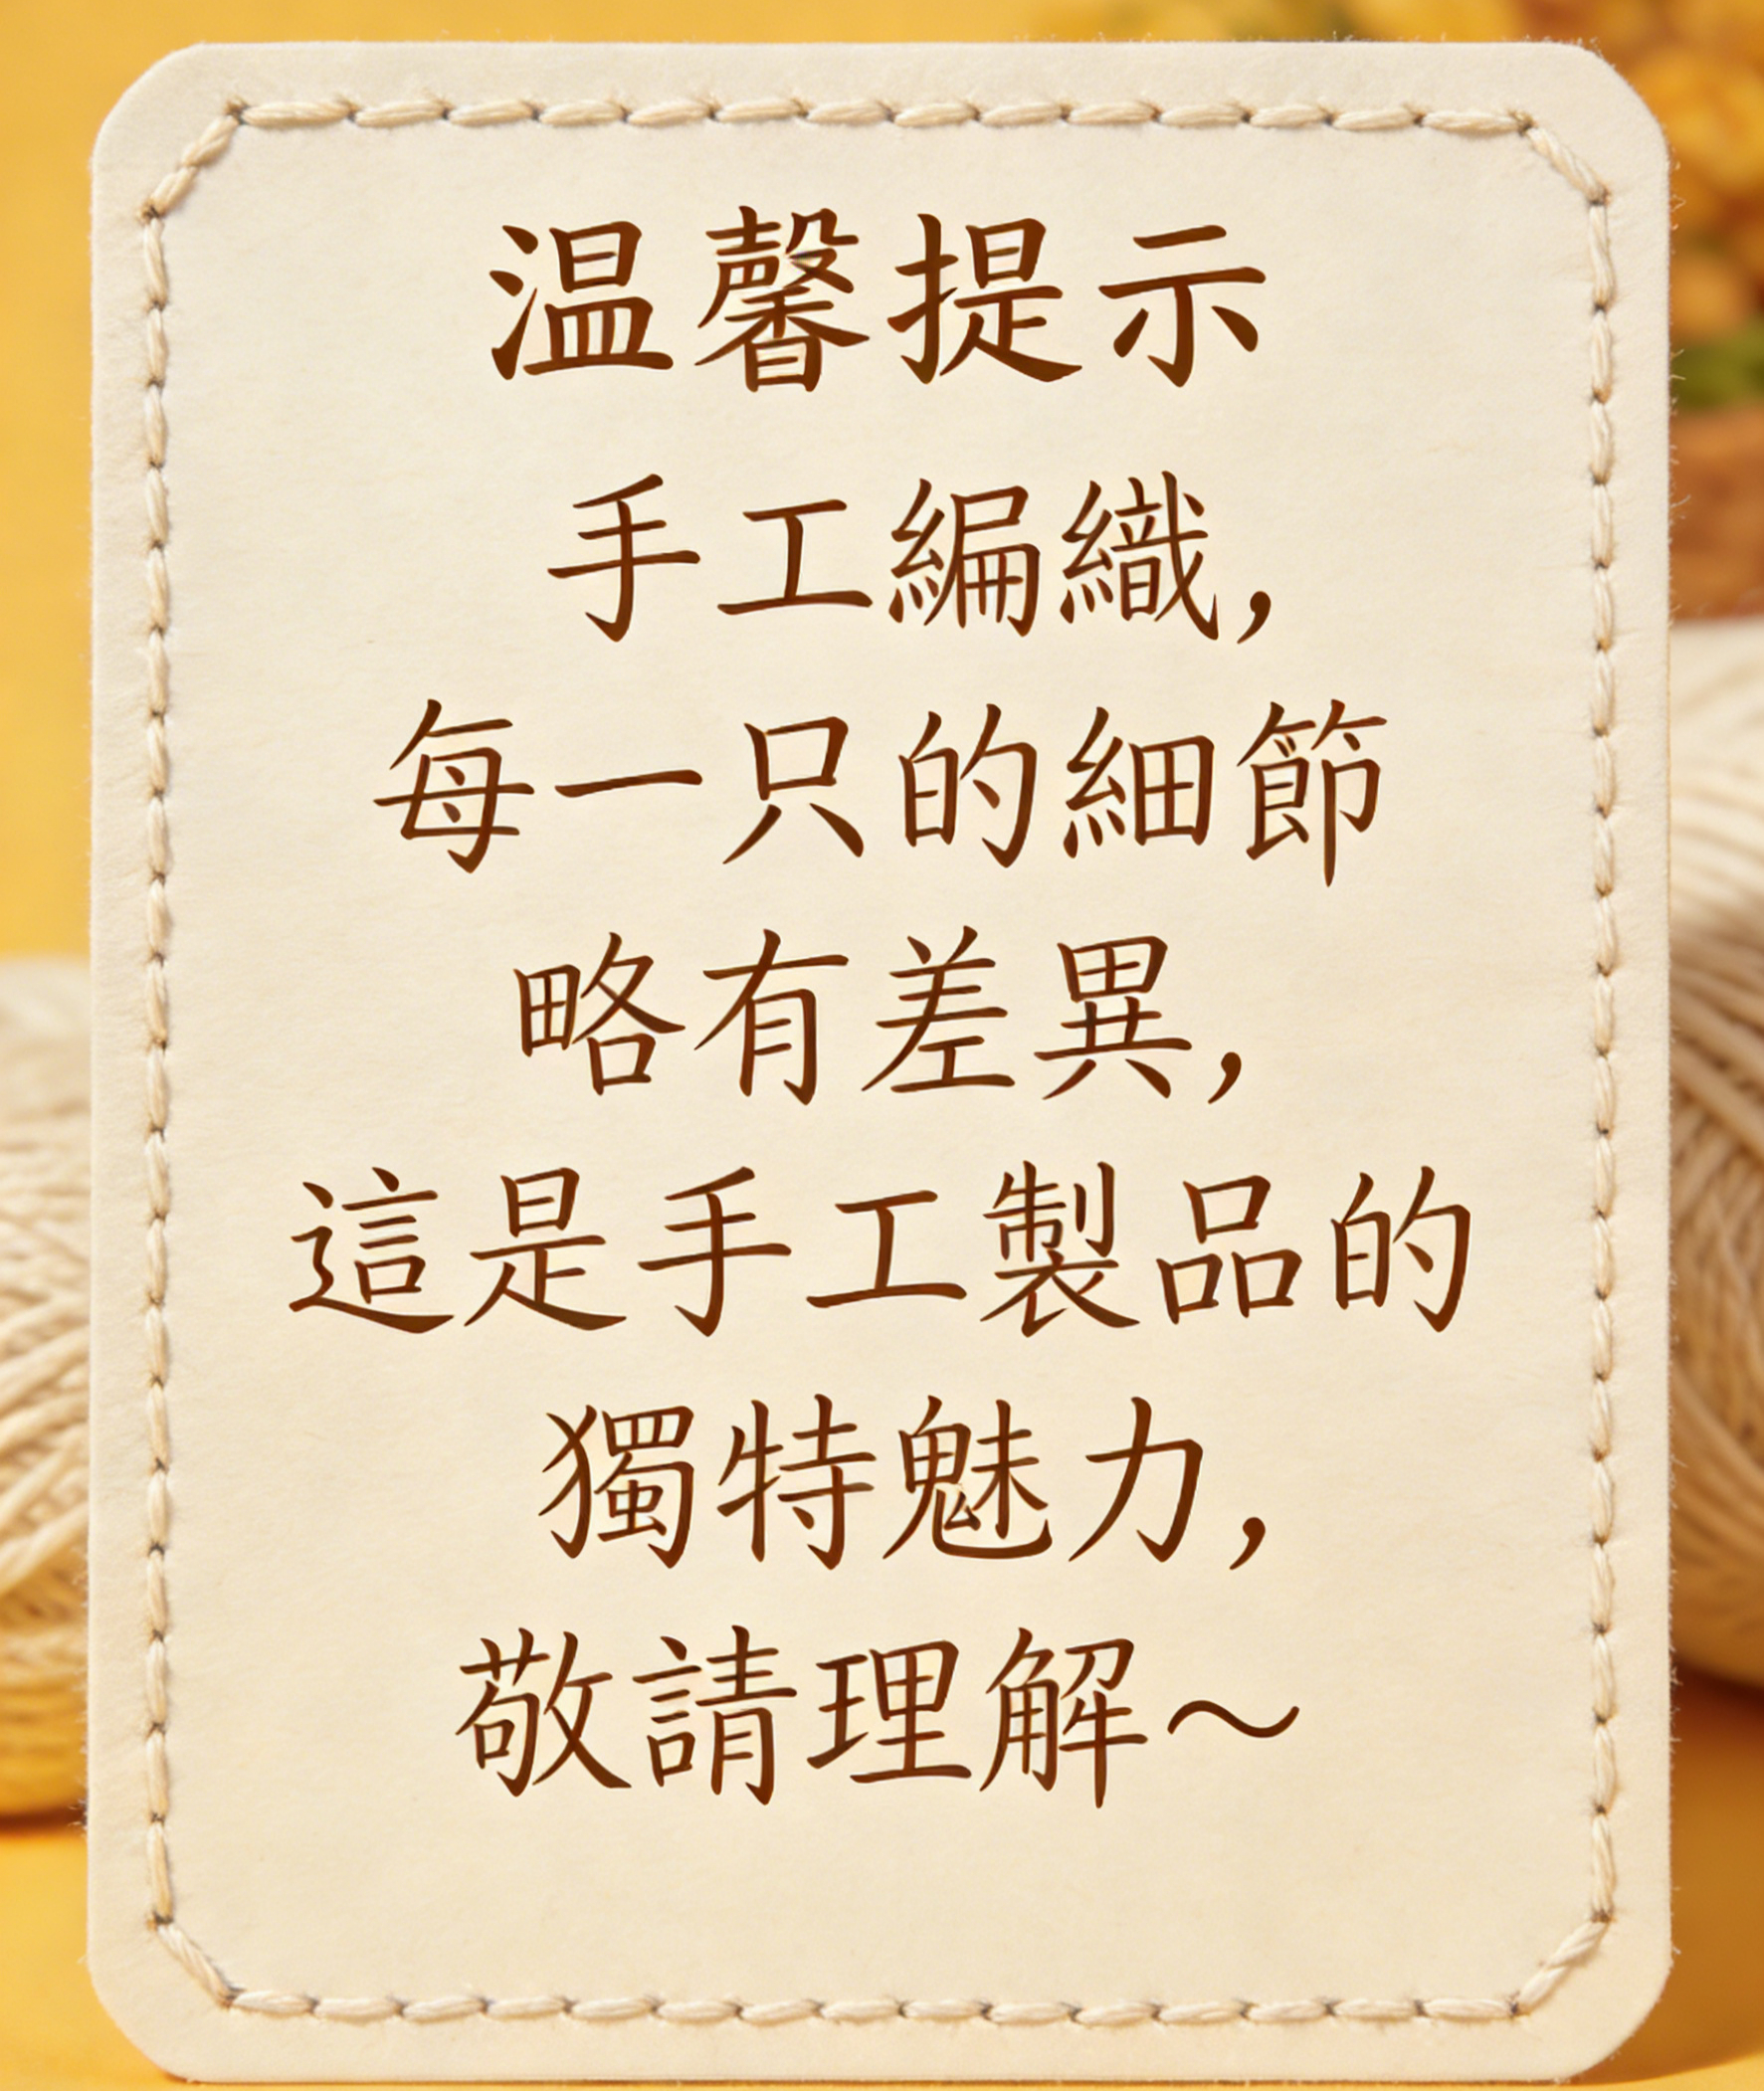 温馨提示
手工編織,
每一只的細節
略有差異,
這是手工製品的
獨特魅力,
敬請理解～